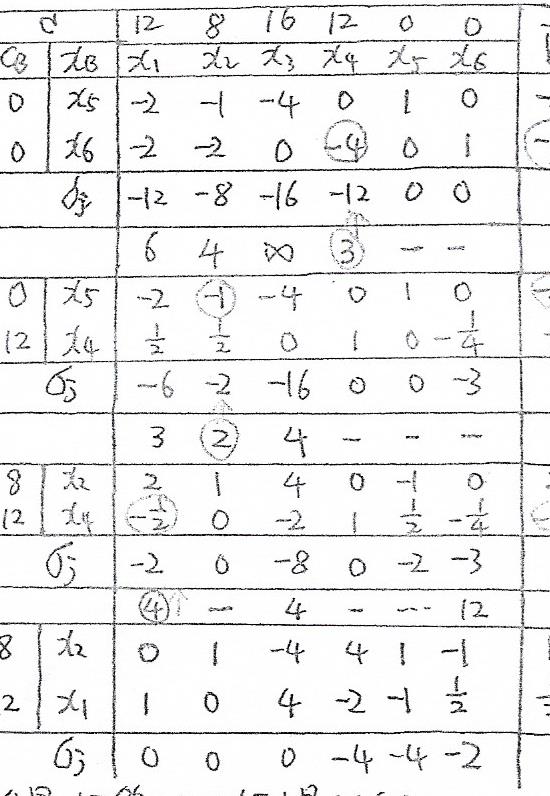 C 12 8 16 12 0 0
CB XB x1 x2 x3 x4 x5 x6
0 x5 -2 -1 -4 0 1 0
0 x6 -2 -2 0 -4 0 1
σj -12 -8 -16 -12 0 0
6 4 ∞ 3 - -
0 x5 -2 -1 -4 0 1 0
12 x4 1/2 1/2 0 1 0 -1/4
σj -6 -2 -16 0 0 -3
3 2 4 - - -
8 x2 2 1 4 0 -1 0
12 x4 -1/2 0 -2 1 1/2 -1/4
σj -2 0 -8 0 -2 -3
4 - 4 - --- 12
8 x2 0 1 -4 4 1 -1
2 x1 1 0 4 -2 -1 1/2
σj 0 0 0 -4 -4 -2